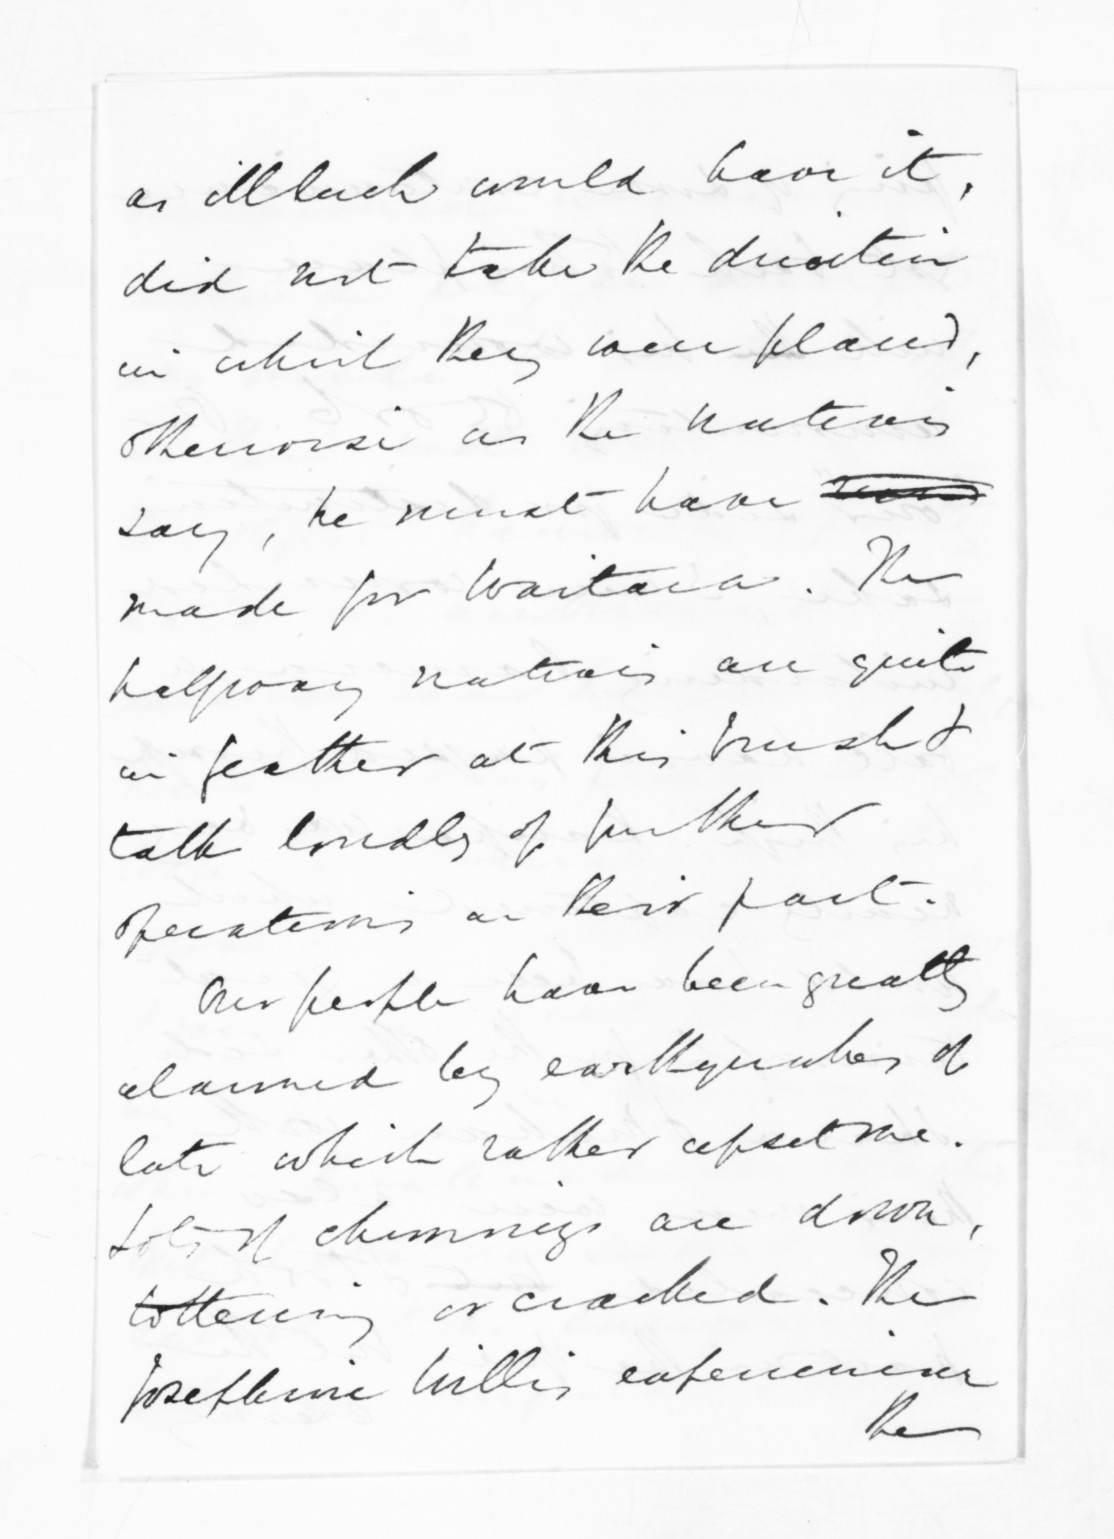 as ill luck would have it,
did not take the direction
in which they were placed,
otherwise as the natives
say, he must have
made for Waitara. The
halfway natives are quite
in feather at this brush &
talk loudly of further
operations on their part.
Our people have been greatly
alarmed by earthquakes of
late which rather upset me.
Lots of chimneys are down,
tottering or cracked. The
Josephine Willis experiences
the